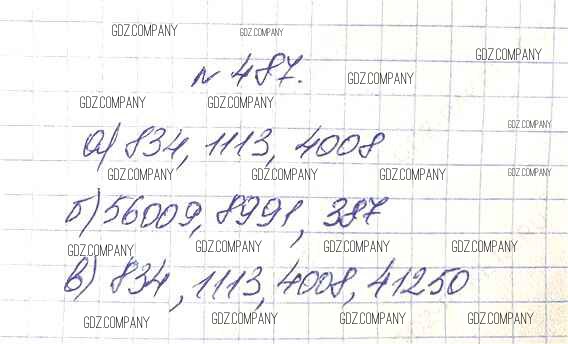 GDZ.COMPANY GDZ.COMPANY
№ 487.
GDZ.COMPANY GDZ.COMPANY
GDZ.COMPANY GDZ.COMPANY
GDZ.COMPANY
а) 834, 1113, 4008
GDZ.COMPANY GDZ.COMPANY GDZ.COMPANY GDZ.COMPANY
б) 56009, 8991, 387
GDZ.COMPANY GDZ.COMPANY GDZ.COMPANY GDZ.COMPANY
в) 834, 1113, 4008, 41250
GDZ.COMPANY GDZ.COMPANY GDZ.COMPANY GDZ.COMPANY